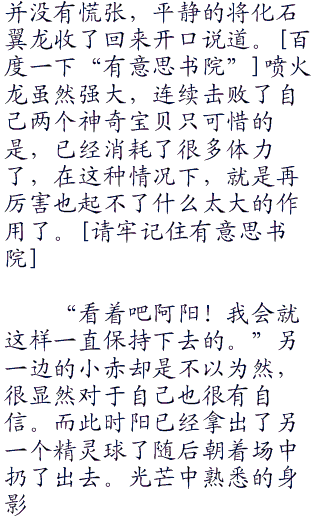 并没有慌张，平静的将化石
翼龙收了回来开口说道。[百
度一下“有意思书院”]喷火
龙虽然强大，连续击败了自
己两个神奇宝贝只可惜的
是，已经消耗了很多体力
了，在这种情况下，就是再
厉害也起不了什么太大的作
用了。[请牢记住有意思书
院]
“看着吧阿阳！我会就
这样一直保持下去的。”另
一边的小赤却是不以为然，
很显然对于自己也很有自
信。而此时阳已经拿出了另
一个精灵球了随后朝着场中
扔了出去。光芒中熟悉的身
影